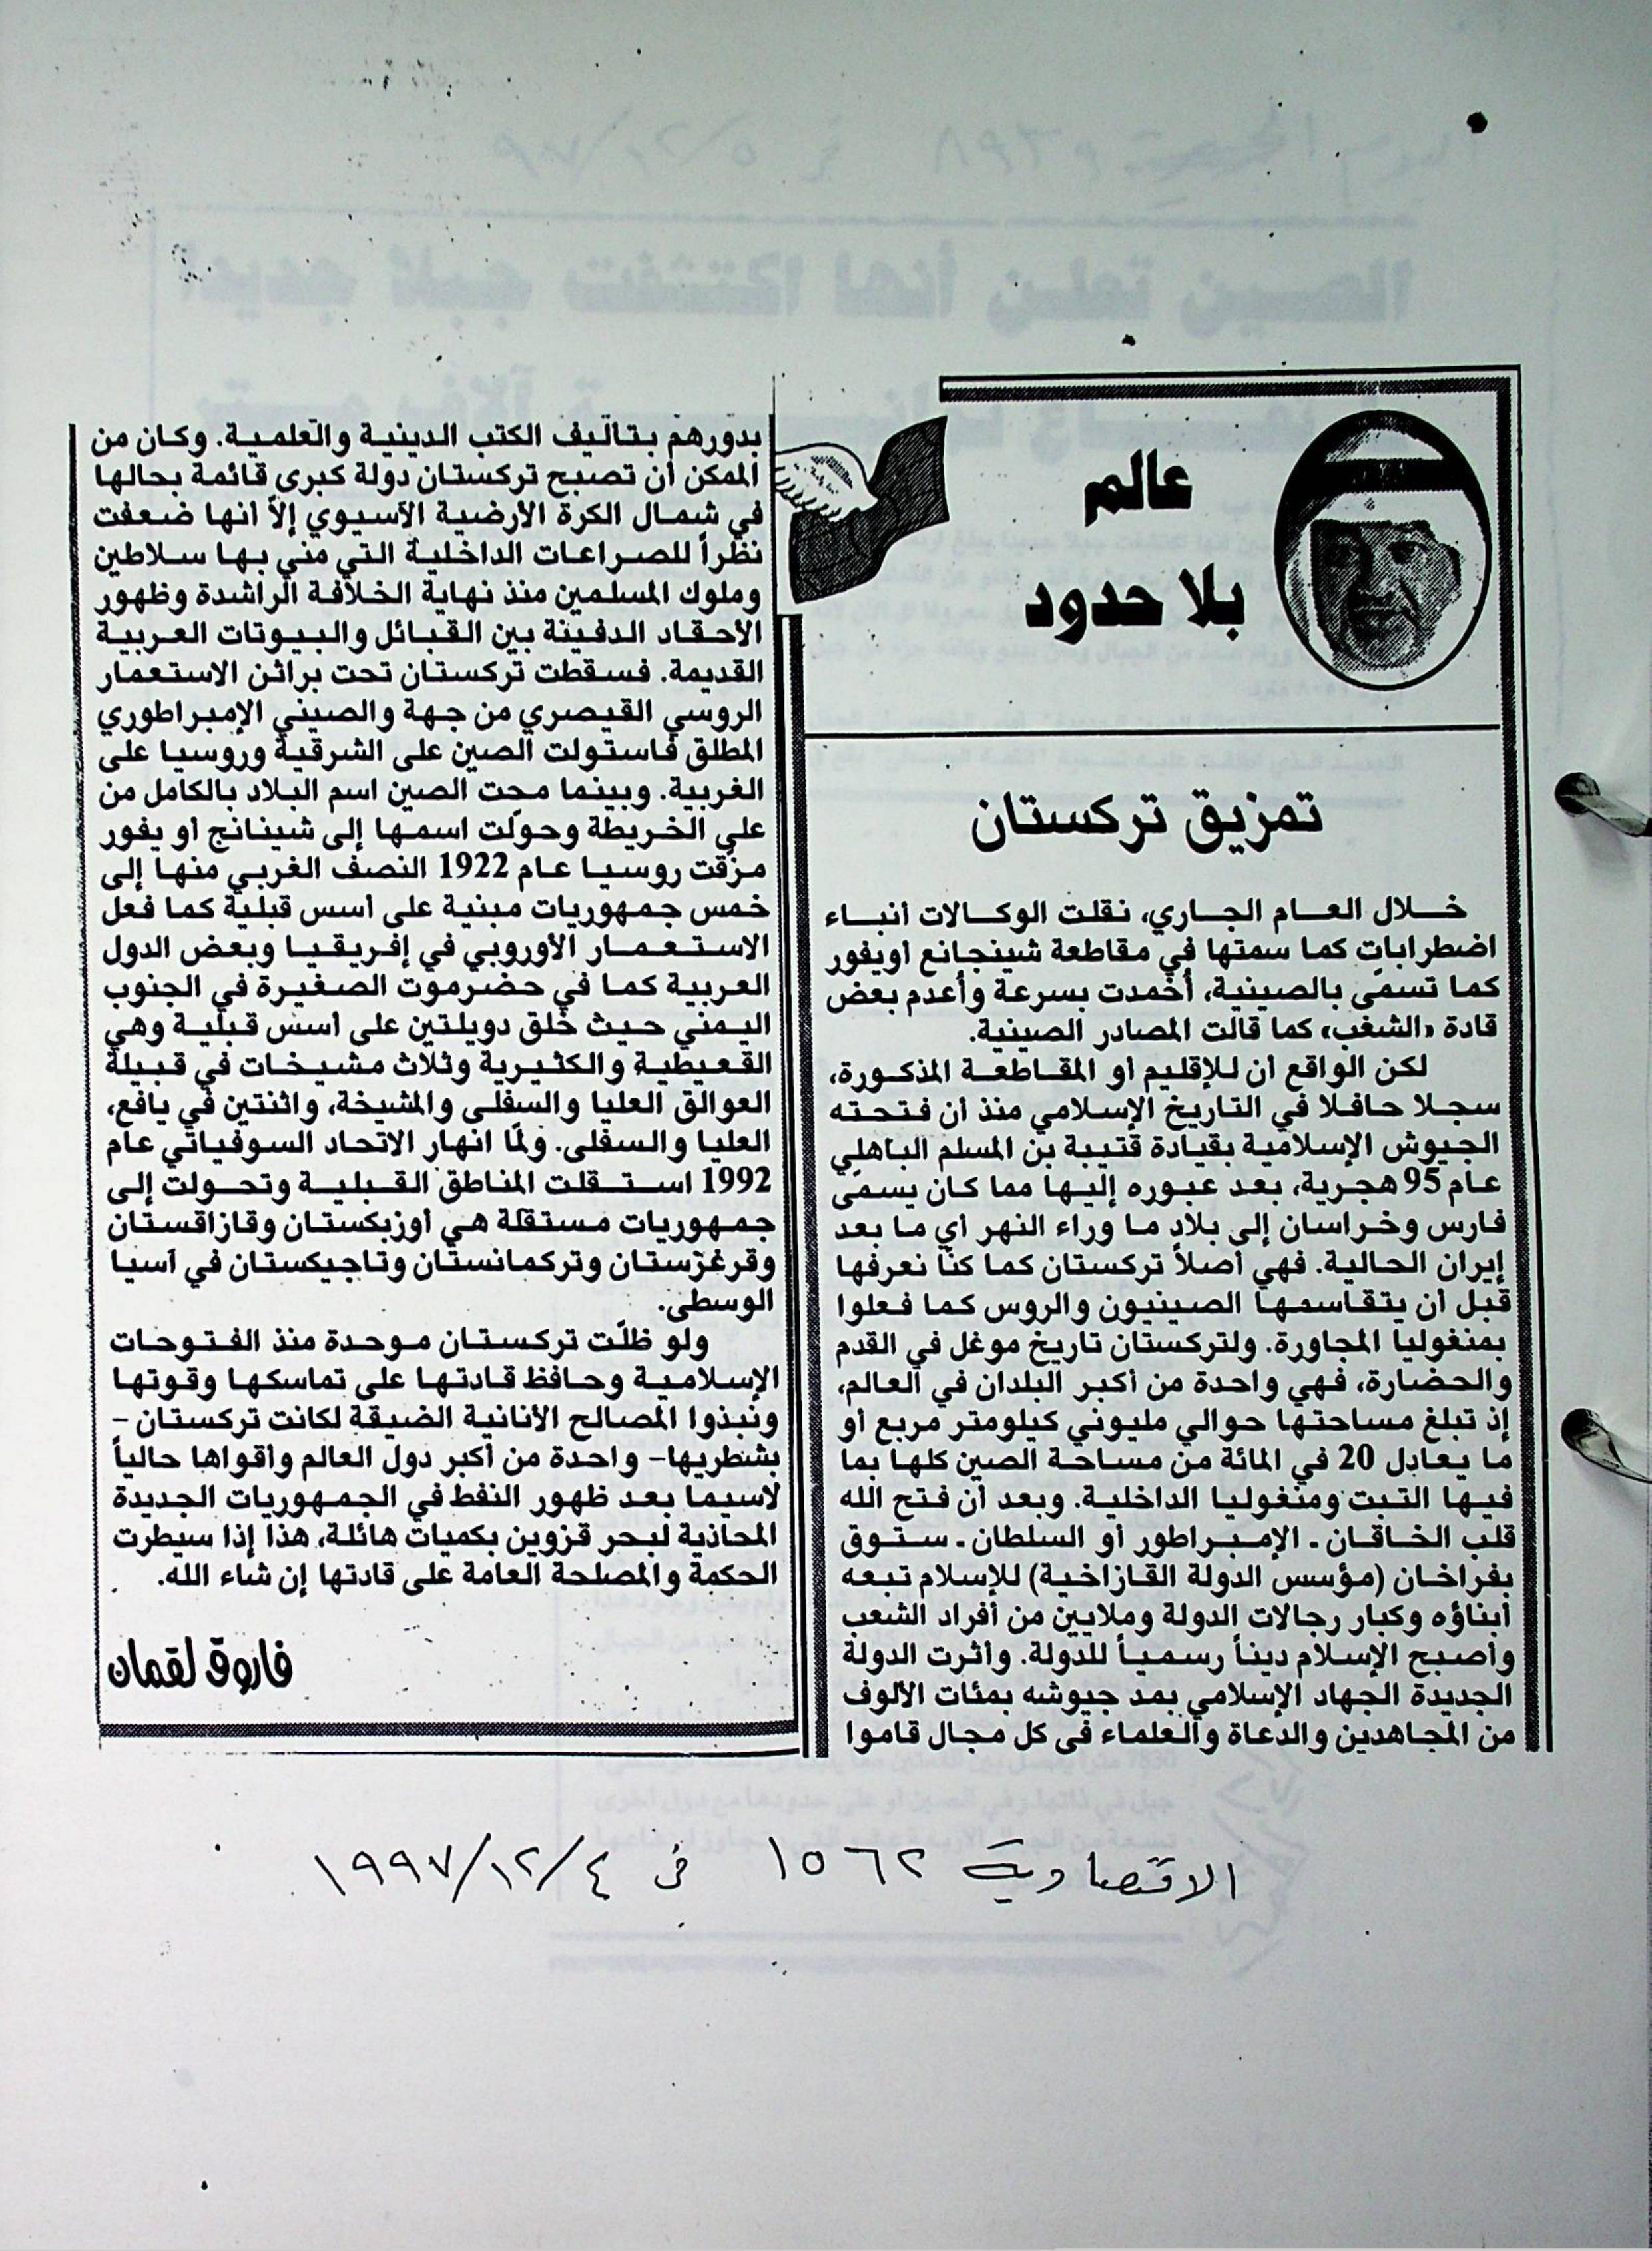 عالم
بلا حدود
تمزيق تركستان
خلال العام الجاري، نقلت الوكالات أنباء
اضطرابات كما سمتها في مقاطعة شينجانغ أويغور
كما تسمّى بالصينية، أخمدت بسرعة وأعدم بعض
قادة «الشغب» كما قالت المصادر الصينية.
لكن الواقع أن للإقليم أو المقاطعة المذكورة،
سجلا حافلا في التاريخ الإسلامي منذ أن فتحته
الجيوش الإسلامية بقيادة قتيبة بن المسلم الباهلي
عام 95 هجرية، بعد عبوره إليها مما كان يسمى
فارس وخراسان إلى بلاد ما وراء النهر أي ما بعد
إيران الحالية. فهي أصلاً تركستان كما كنّا نعرفها
قبل أن يتقاسمها الصينيون والروس كما فعلوا
بمنغوليا المجاورة. ولتركستان تاريخ موغل في القدم
والحضارة، فهي واحدة من أكبر البلدان في العالم،
إذ تبلغ مساحتها حوالي مليوني كيلومتر مربع أو
ما يعادل 20 في المائة من مساحة الصين كلها بما
فيها التبت ومنغوليا الداخلية. وبعد أن فتح الله
قلب الخاقان ـ الإمبراطور أو السلطان ـ ستوق
بغراخان (مؤسس الدولة القازاخية) للإسلام تبعه
أبناؤه وكبار رجالات الدولة وملايين من أفراد الشعب
وأصبح الإسلام ديناً رسمياً للدولة. وأثرت الدولة
الجديدة الجهاد الإسلامي بمد جيوشه بمئات الألوف
من المجاهدين والدعاة والعلماء في كل مجال قاموا
بدورهم بتأليف الكتب الدينية والعلمية. وكان من
الممكن أن تصبح تركستان دولة كبرى قائمة بحالها
في شمال الكرة الأرضية الآسيوي إلاّ أنها ضعفت
نظراً للصراعات الداخلية التي مني بها سلاطين
وملوك المسلمين منذ نهاية الخلافة الراشدة وظهور
الأحقاد الدفينة بين القبائل والبيوتات العربية
القديمة. فسقطت تركستان تحت براثن الاستعمار
الروسي القيصري من جهة والصيني الإمبراطوري
المطلق فاستولت الصين على الشرقية وروسيا على
الغربية. وبينما محت الصين اسم البلاد بالكامل من
على الخريطة وحوّلت اسمها إلى شينانج أو يغور
مزّقت روسيا عام 1922 النصف الغربي منها إلى
خمس جمهوريات مبنية على أسس قبلية كما فعل
الاستعمار الأوروبي في إفريقيا وبعض الدول
العربية كما في حضرموت الصغيرة في الجنوب
اليمني حيث خلق دويلتين على أسس قبلية وهي
القعيطية والكثيرية وثلاث مشيخات في قبيلة
العوالق العليا والسفلى والمشيخة، واثنتين في يافع،
العليا والسفلى. ولمّا انهار الاتحاد السوفياتي عام
1992 استقلت المناطق القبلية وتحولت إلى
جمهوريات مستقلة هي أوزبكستان وقازاقستان
وقرغزستان وتركمانستان وتاجيكستان في آسيا
الوسطى.
ولو ظلّت تركستان موحدة منذ الفتوحات
الإسلامية وحافظ قادتها على تماسكها وقوتها
ونبذوا المصالح الأنانية الضيقة لكانت تركستان -
بشطريها- واحدة من أكبر دول العالم وأقواها حالياً
لاسيما بعد ظهور النفط في الجمهوريات الجديدة
المحاذية لبحر قزوين بكميات هائلة، هذا إذا سيطرت
الحكمة والمصلحة العامة على قادتها إن شاء الله.
فاروق لقمان
الاقتصادية ١٥٦٢ في ١٩٩٧/١٢/٤